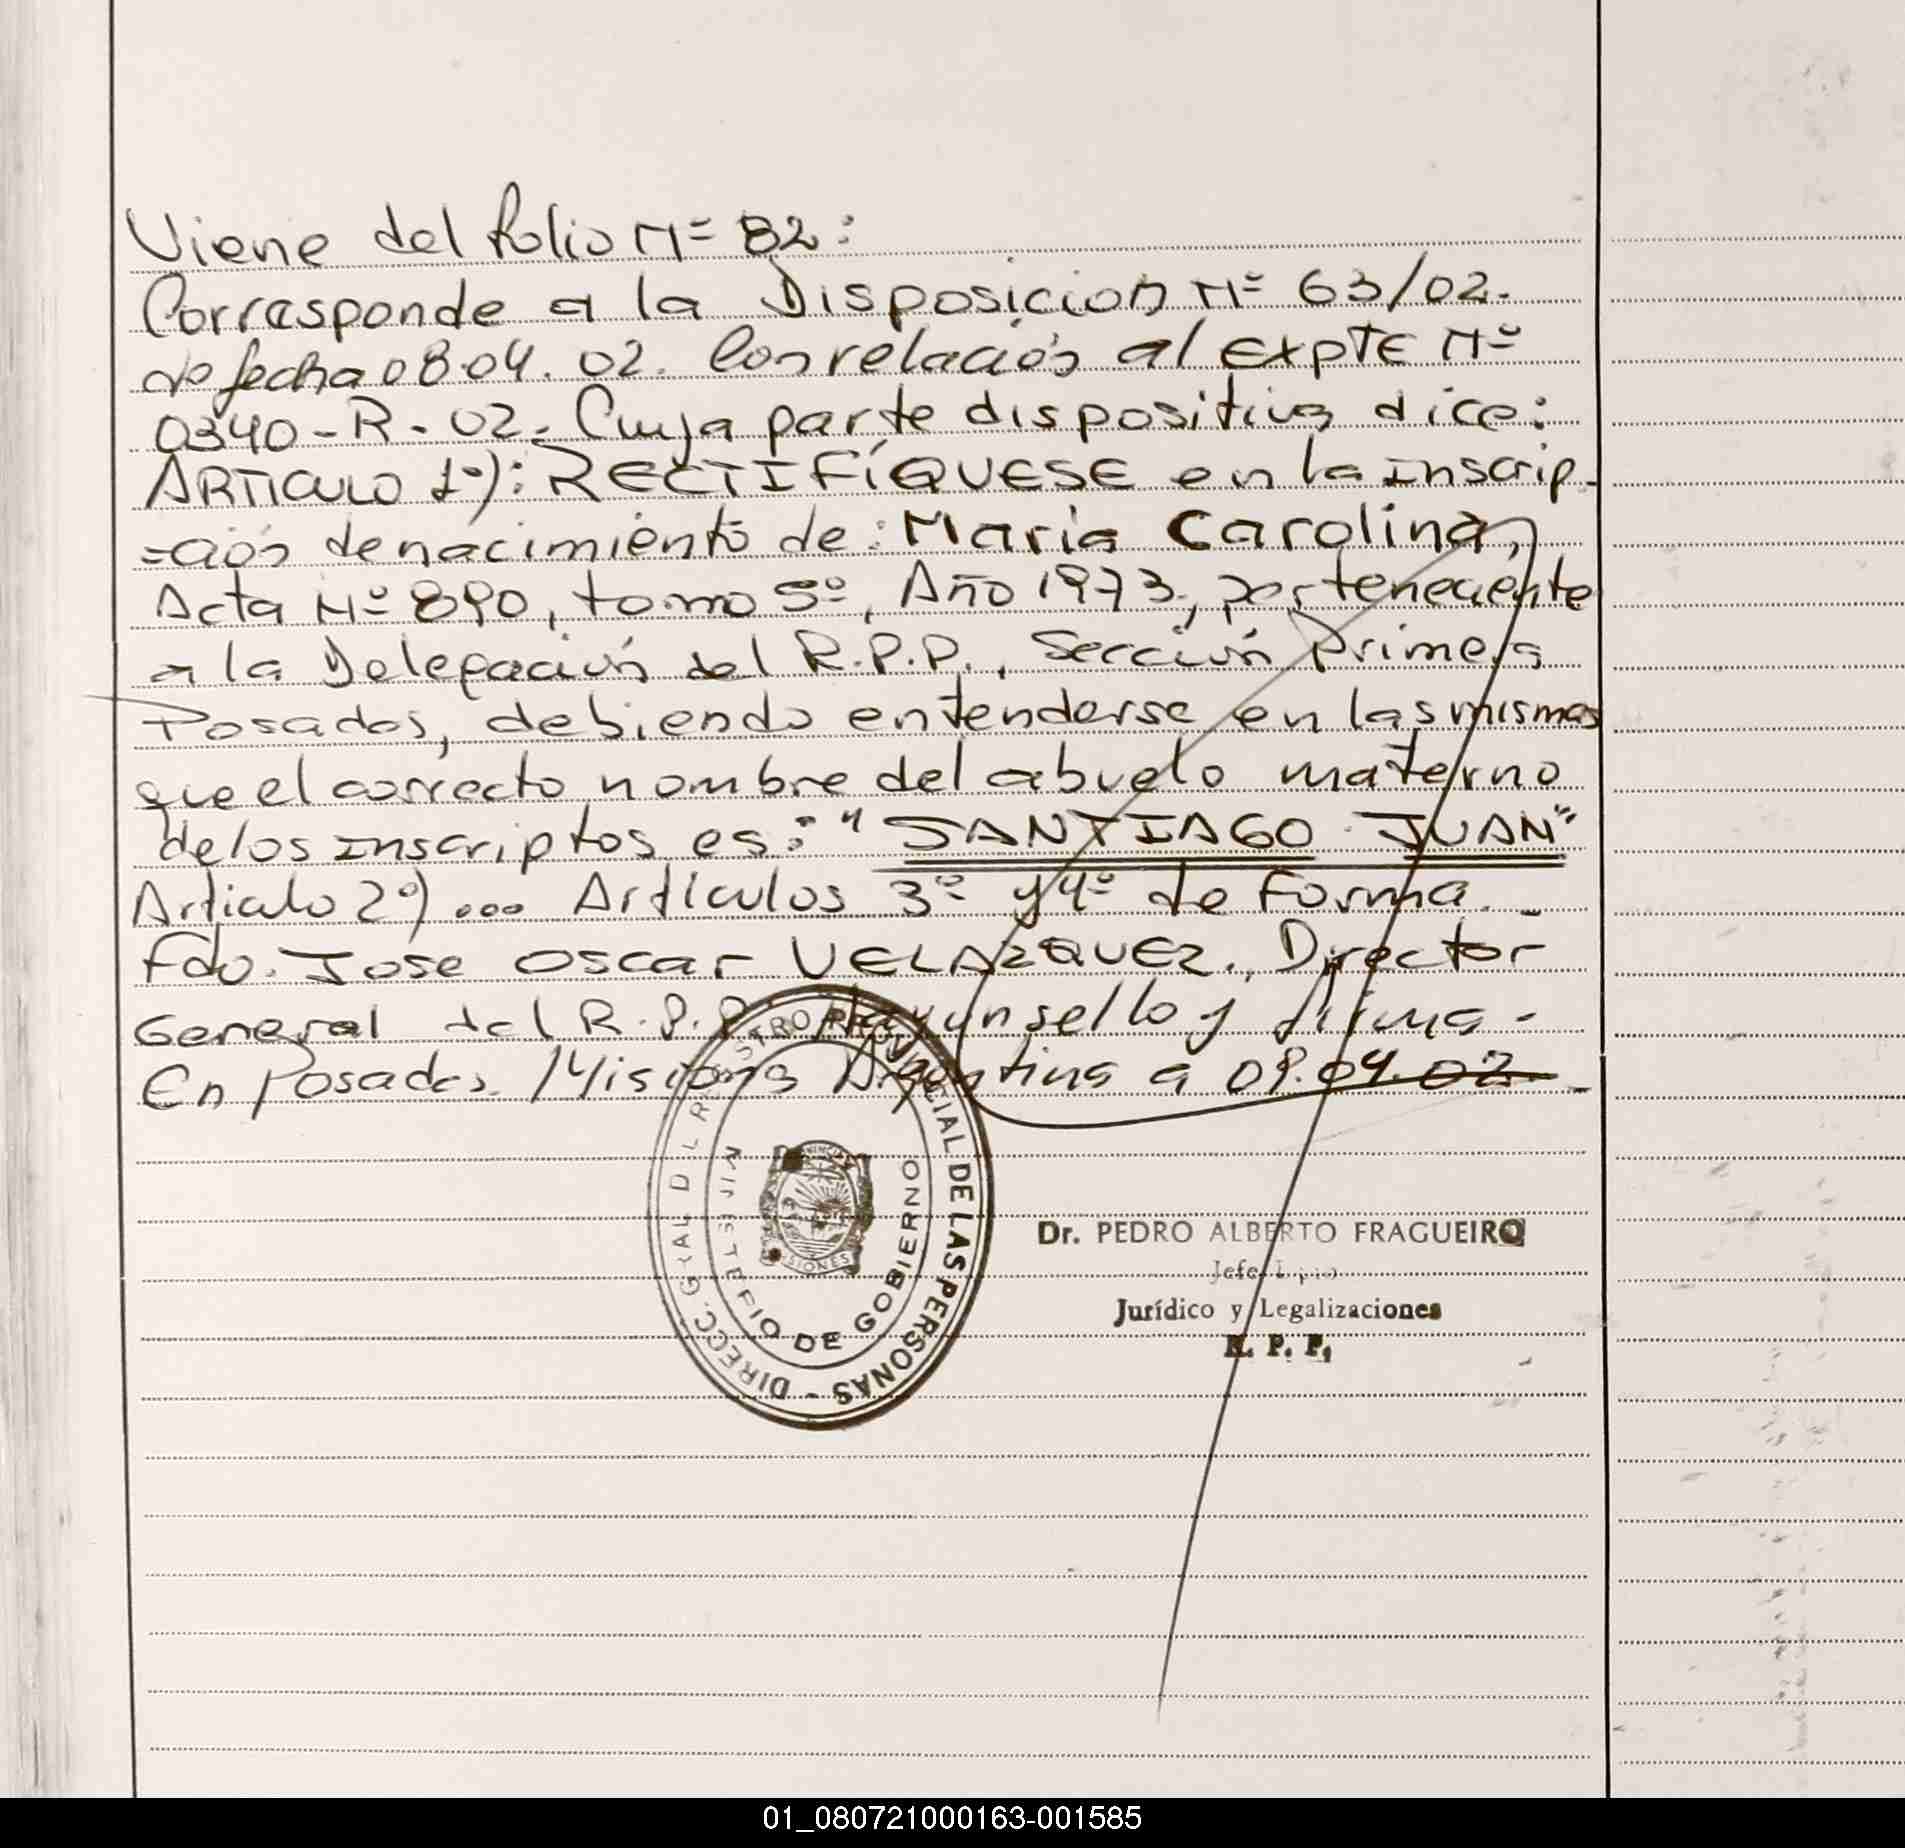 Viene del folio Nº 82:
Corresponde a la Disposicion Nº 63/02.
de fecha 08.04.02. Con relación al EXPTE Nº
0340-R-02. Cuya parte dispositiva dice:
ARTICULO 1º): RECTIFÍQUESE en la inscrip-
=ción de nacimiento de: Maria Carolina,
Acta Nº 890, tomo 5º, Año 1973, perteneciente
a la Delegación del R.P.P., Sección Primera
Posadas, debiendo entenderse en las mismas
que el correcto nombre del abuelo materno
de los inscriptos es: "SANTIAGO JUAN"
Articulo 2º) ... Artículos 3º y 4º de Forma.-
Fdo. Jose Oscar VELAZQUEZ. Director
General del R.P.P. Hay un sello y firma.-
En Posadas. Misiones Argentina a 09.04.02.-
DIRECC. GRAL DEL REGISTRO PROVINCIAL DE LAS PERSONAS -
MINISTERIO DE GOBIERNO
MISIONES
Dr. PEDRO ALBERTO FRAGUEIRO
Jefe
Jurídico y Legalizaciones
R. P. P.
01_080721000163-001585